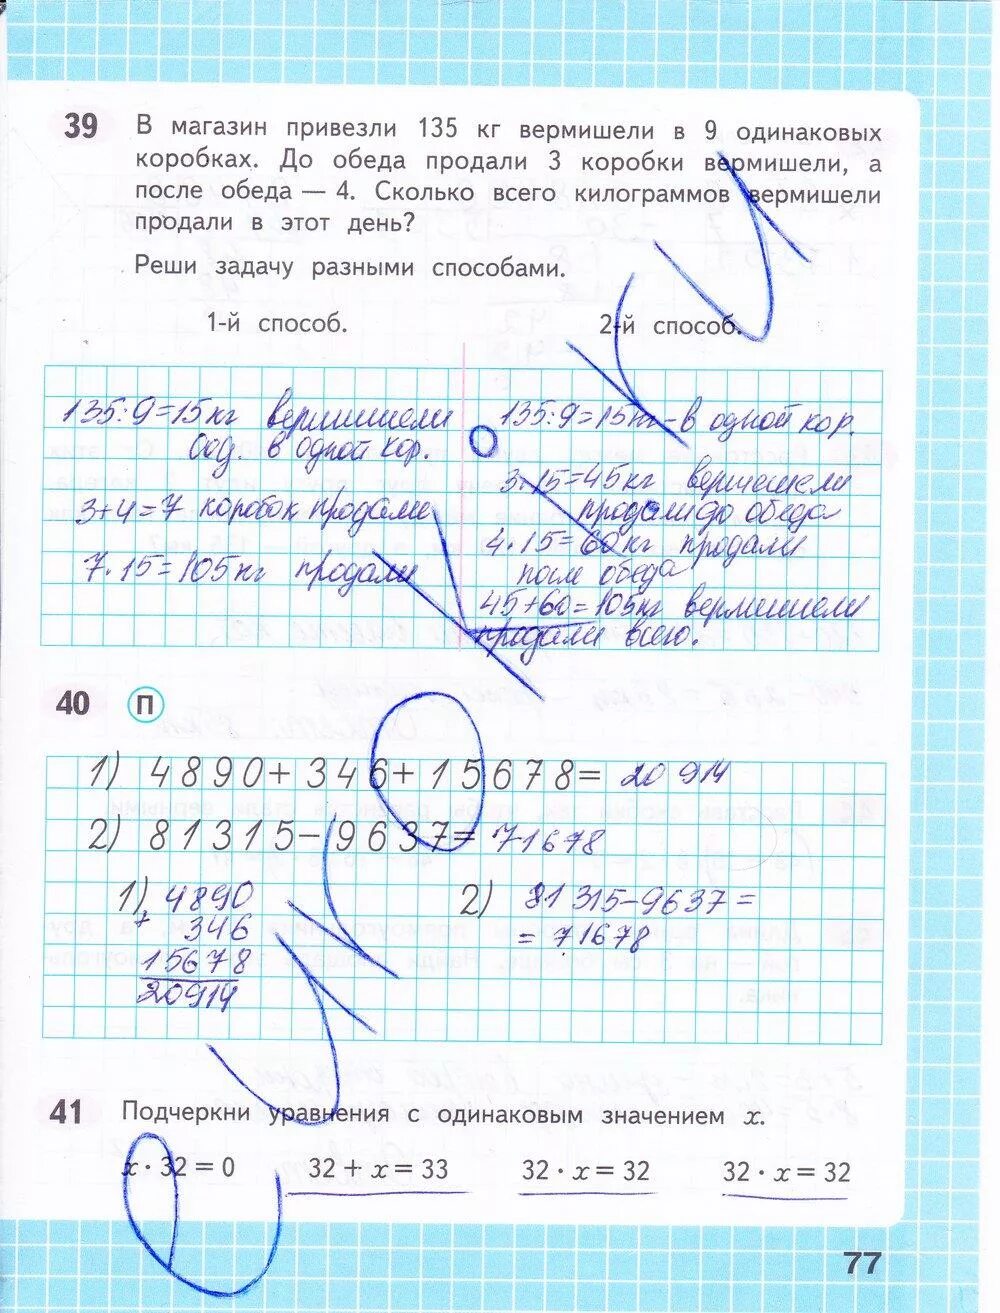 39 В магазин привезли 135 кг вермишели в 9 одинаковых
коробках. До обеда продали 3 коробки вермишели, а
после обеда — 4. Сколько всего килограммов вермишели
продали в этот день?
Реши задачу разными способами.
1-й способ.
2-й способ.
135:9=15кг вермишели
в одной кор.
3+4=7 коробок продали
7·15=105кг продали
135:9=15кг-в одной кор.
3·15=45кг вермишели
продали до обеда
4·15=60кг продали
после обеда
45+60=105кг вермишели
продали всего.
40 П
1) 4890+346+15678= 20 914
2) 81315-9637= 71678
1) 4890
+ 346
15678
20914
2) 81 315-9637=
= 71678
41 Подчеркни уравнения с одинаковым значением x.
x · 32 = 0 32 + x = 33 32 · x = 32 32 · x = 32
77